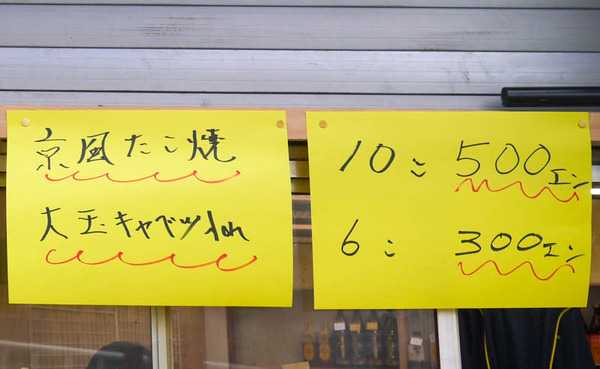 京風たこ焼
大玉キャベツ入り
10こ 500エン
6こ 300エン